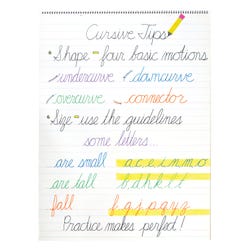 Cursive Tips
Shape - four basic motions
undercurve downcurve
overcurve connector
Size - use the guidelines
some letters...
are small a c e i n m o
are tall b d h k t l
fall f g j p q y z
Practice makes perfect!